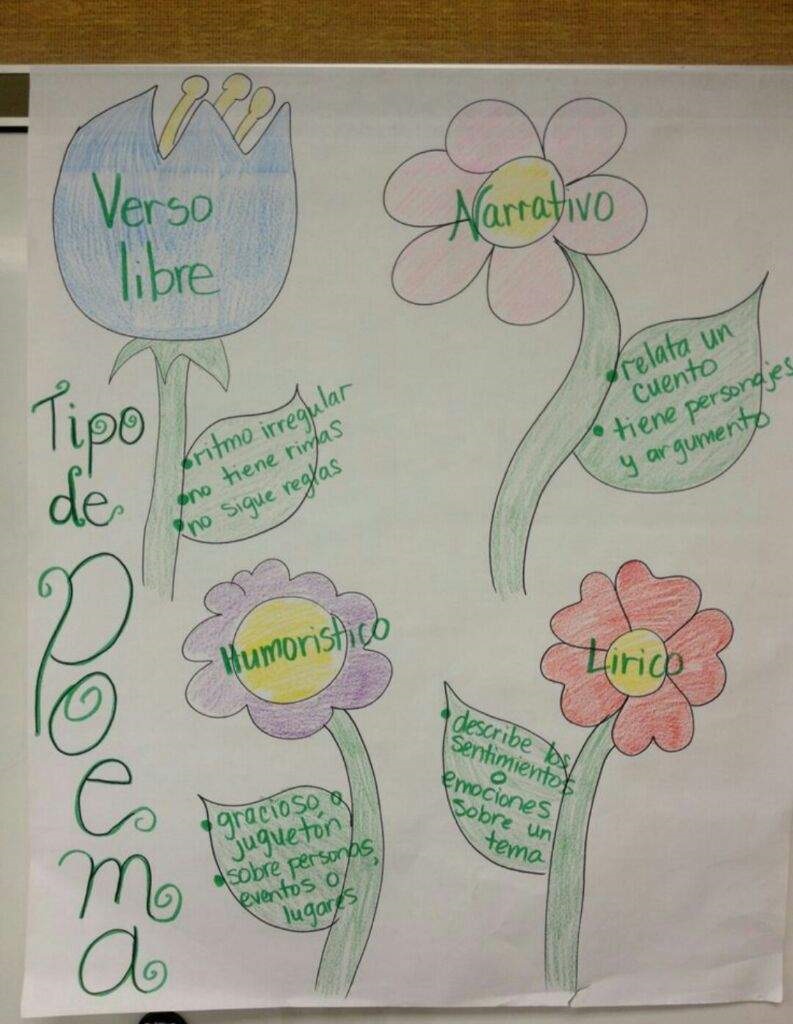 Tipo
de
Poema
Verso
libre
• ritmo irregular
• no tiene rimas
• no sigue reglas
Narrativo
• relata un
cuento
• tiene personajes
y argumento
Humoristico
• gracioso o
juguetón
• sobre personas,
eventos o
lugares
Lirico
• describe los
sentimientos
o
emociones
sobre un
tema